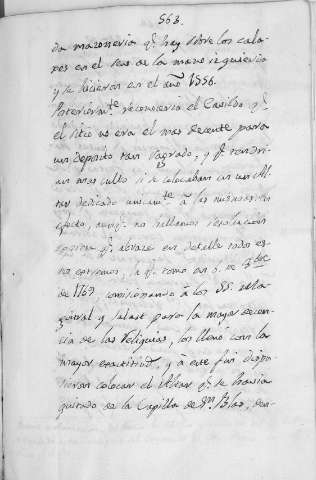 568.
da mazoneria q.e hay sobre los cala-
xes en el      de la mano izquierda
y se hicieron en el año 1556.
Posteriorm.te reconociendo el Cavildo q.e
el sitio no era el mas decente para
un deposito tan sagrado, y q.e tendri-
an mas culto si se colocaban en un Al-
tar dedicado unicam.te à las mismas; en
efecto, aunq.e no hallamos resolucion
expresa q.e abraze en detalle todos es-
tos extremos,     q.e tomó en     de
de 1769 comisionando à los SS.
    y       para la mayor decen-
cia de las Reliquias, los llenó con la
mayor exactitud, y à este fin dispu-
sieron colocar el Altar q.e se havia
quitado de la Capilla de S.n Blas, den-